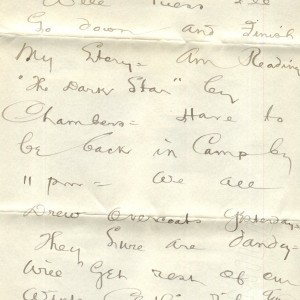 Well Guess I'll
Go down and Finish
My Story = Am Reading
"The Dark Star" by
Chambers = Have to
be back in Camp by
11 pm = We all
Drew Overcoats Yesterday
They Sure are dandy =
Will Get rest of our